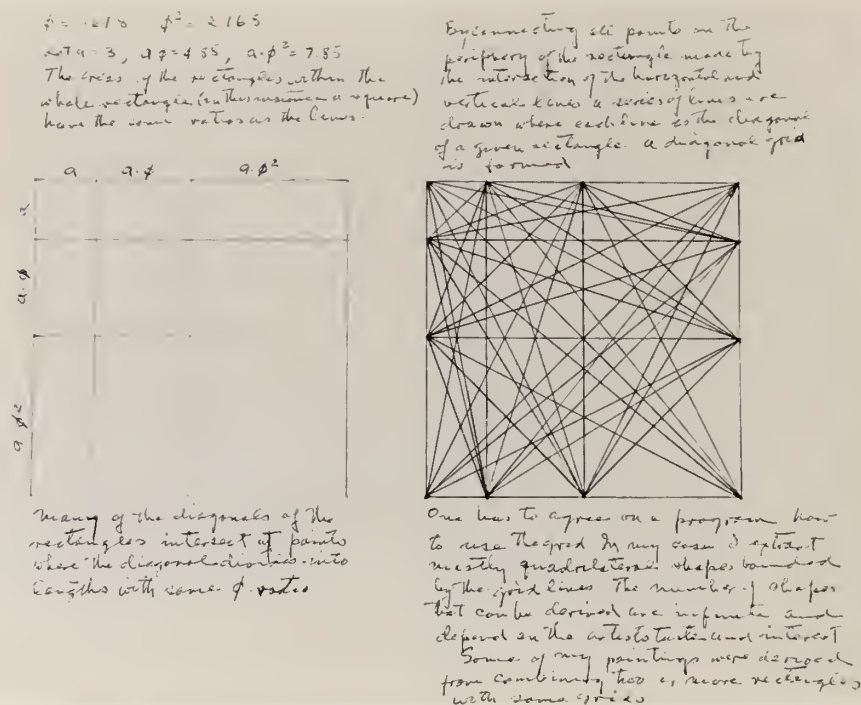 φ = 1.618 φ² = 2.165
Let a = 3, a φ = 4.85, a·φ² = 7.85
The areas of the rectangles within the
whole rectangle (in this instance a square)
have the same ratios as the lines.
a a·φ a·φ²
a
a·φ
a φ²
Many of the diagonals of the
rectangles intersect at points
where the diagonal divides into
lengths with same φ ratio
By connecting all points on the
periphery of the rectangle made by
the intersection of the horizontal and
vertical lines a series of lines are
drawn where each line is the diagonal
of a given rectangle. A diagonal grid
is formed
One has to agree on a program how
to use the grid In my case I extract
mostly quadrilateral shapes bounded
by the grid lines The number of shapes
that can be derived are infinite and
depend on the artists taste and interest
Some of my paintings were derived
from combining two or more rectangles
with same grids